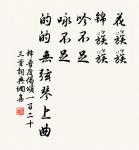 花蔟蔟
錦蔟蔟
吟不足
咏不足
的的無弦琴上曲
釋普度偈頌一百二十
三首詞典網集